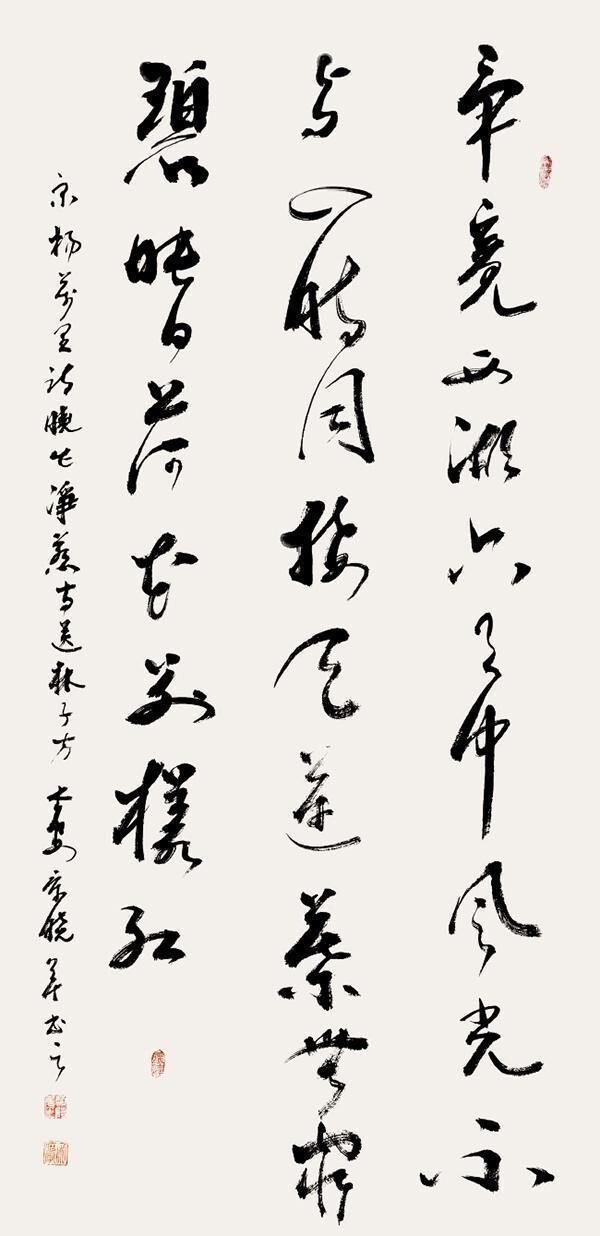 畢竟西湖六月中風光不
与四時同接天蓮葉無窮
碧映日荷花別樣紅
宋楊萬里詩曉出淨慈寺送林子方